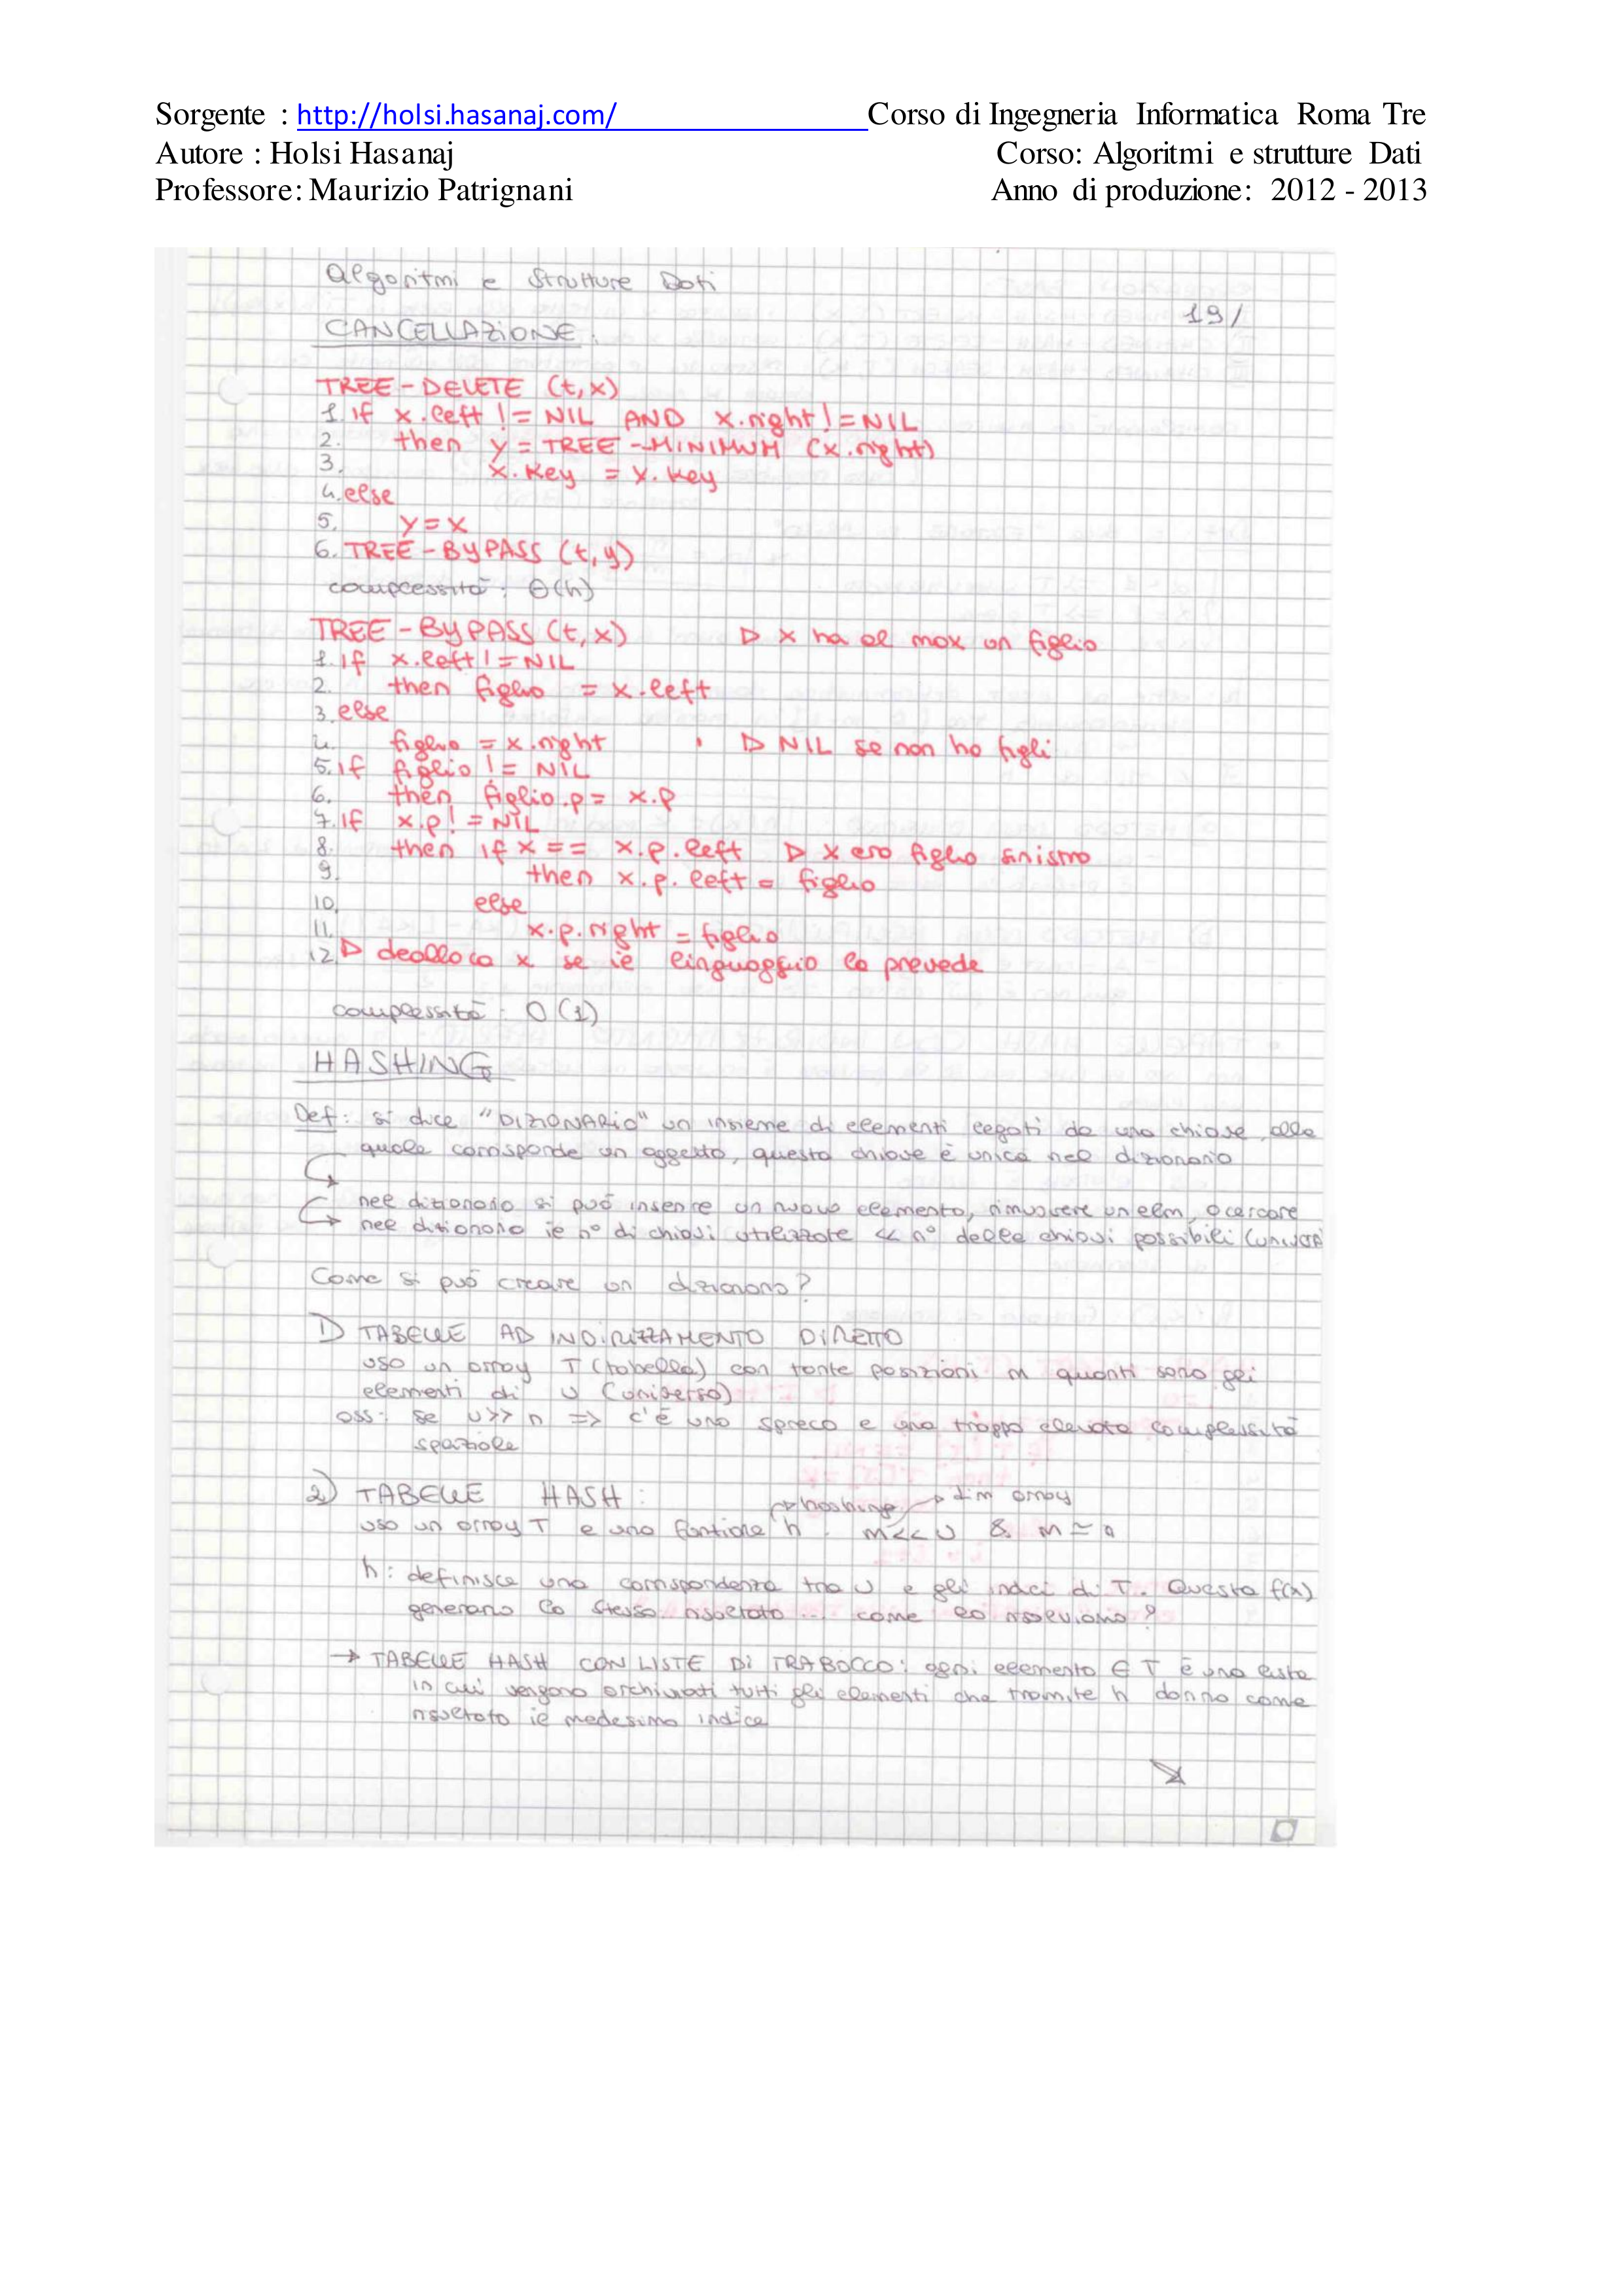 Sorgente : http://holsi.hasanaj.com/ Corso di Ingegneria Informatica Roma Tre
Autore : Holsi Hasanaj Corso: Algoritmi e strutture Dati
Professore: Maurizio Patrignani Anno di produzione: 2012 - 2013
Algoritmi e Strutture Dati
19/
CANCELLAZIONE:
TREE-DELETE (t,x)
1. if x.left != NIL AND x.right != NIL
2. then y = TREE-MINIMUM (x.right)
3. x.key = y.key
4. else
5. y = x
6. TREE-BYPASS (t,y)
complessità: Θ(h)
TREE-BYPASS (t,x) ▷ x ha al max un figlio
1. if x.left != NIL
2. then figlio = x.left
3. else
4. figlio = x.right ▷ NIL se non ho figli
5. if figlio != NIL
6. then figlio.p = x.p
7. if x.p != NIL
8. then if x == x.p.left ▷ x ero figlio sinistro
9. then x.p.left = figlio
10. else
11. x.p.right = figlio
12. ▷ dealloca x se il linguaggio lo prevede
complessità: O(1)
HASHING
Def: si dice "DIZIONARIO" un insieme di elementi legati da una chiave, alla
quale corrisponde un oggetto, questa chiave è unica nel dizionario
nel dizionario si può inserire un nuovo elemento, rimuovere un elem, o cercare
nel dizionario il n° di chiavi utilizzate << n° delle chiavi possibili
Come si può creare un dizionario?
1) TABELLE AD INDIRIZZAMENTO DIRETTO
uso un array T (tabella) con tante posizioni m quanti sono gli
elementi di U (universo)
oss: se U >> n => c'è uno spreco e una troppo elevata complessità
spaziale
2) TABELLE HASH:
hashing → dim array
uso un array T e una funzione h. m << U & m ≃ n
h: definisce una corrispondenza tra U e gli indici di T. Questa f(x)
generano lo stesso risultato... come lo risolviamo?
→ TABELLE HASH CON LISTE DI TRABOCCO: ogni elemento ∈ T è una lista
in cui vengono archiviati tutti gli elementi che tramite h danno come
risultato il medesimo indice